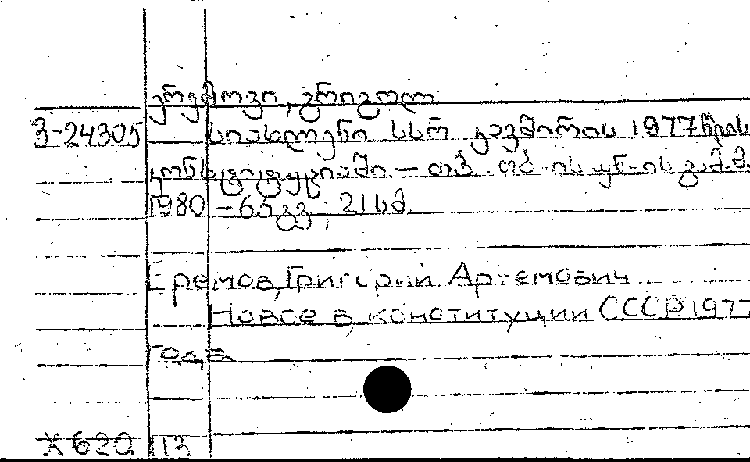 ერემოვი, გრიგოლ
3-24305 სიახლენი სსრ კავშირის 1977 წლის
კონსტიტუციაში – თბ.
1980 – 65 გვ; 21 სმ.
Еремов, Григорий Артемович
Новое в конституции СССР 1977
года
X 620. 113